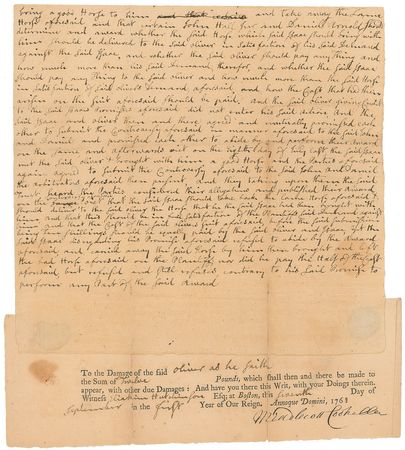 bring a good Horse to him and take away the same
Horse aforesaid and that certain John Hall Jur and Daniel
determine and award whether the said Horse which said Isaac should bring with
him should be delivered to the said Oliver in Satisfaction of his said Demand
against the said Isaac, and whether the said Oliver should pay any Thing and
how much on then his said Demand thereof and whether the said Isaac
should pay any Thing to the said Oliver and how much more than the said Horse
in Satisfaction of said Olivers Demand aforesaid, and how the Cost that had then
arisen on the suit aforesaid should be paid, and the said Oliver giving Credit
to the said Isaac's Promises aforesaid did not enter his said Action And the
said Isaac and Oliver then and there agreed and mutually promised each
other to submit the Controversy aforesaid in manner aforesaid to the said John
and Daniel and promised each other to abide by and perform their Award
on the same and afterwards viz on the eighth Day of May last the said Isaac
met the said Oliver & brought with him a good Horse and the Parties aforesaid
again agreed to submit the Controversy aforesaid to the said John and Daniel
the arbitrators aforesaid then present And they taking upon them the said
Trust heard the Parties considered their allegations and published their Award
on the Premises viz that the said Isaac should take back the entire Horse aforesaid &
should deliver the said Oliver the Horse that the said Isaac had then brought with
him and that this should be in full Satisfaction of the Plaintiffs said Demand against
him and that the Cost of the said Olivers suit aforesaid before the said submission
being two shillings should be equally paid by the said Oliver and Isaac, yet the
said Isaac disregarding his Promise aforesaid refused to abide by the Award
aforesaid and carried away the said Horse by him then brought and left
the bad Horse aforesaid on the Plaintiff, nor did he pay the Half of the Cost
aforesaid but refused and still refuses contrary to his said Promise to
perform any Part of the said Award
To the Damage of the said Oliver as he saith
the Sum of Twelve Pounds, which shall then and there be made to
appear, with other due Damages: And have you there this Writ, with your Doings therein.
Witness Eliakim Hutchinson Esq; at Boston, this seventh Day of
September in the first Year of Our Reign. Annoque Domini, 1761
Middlecott Cooke Cler